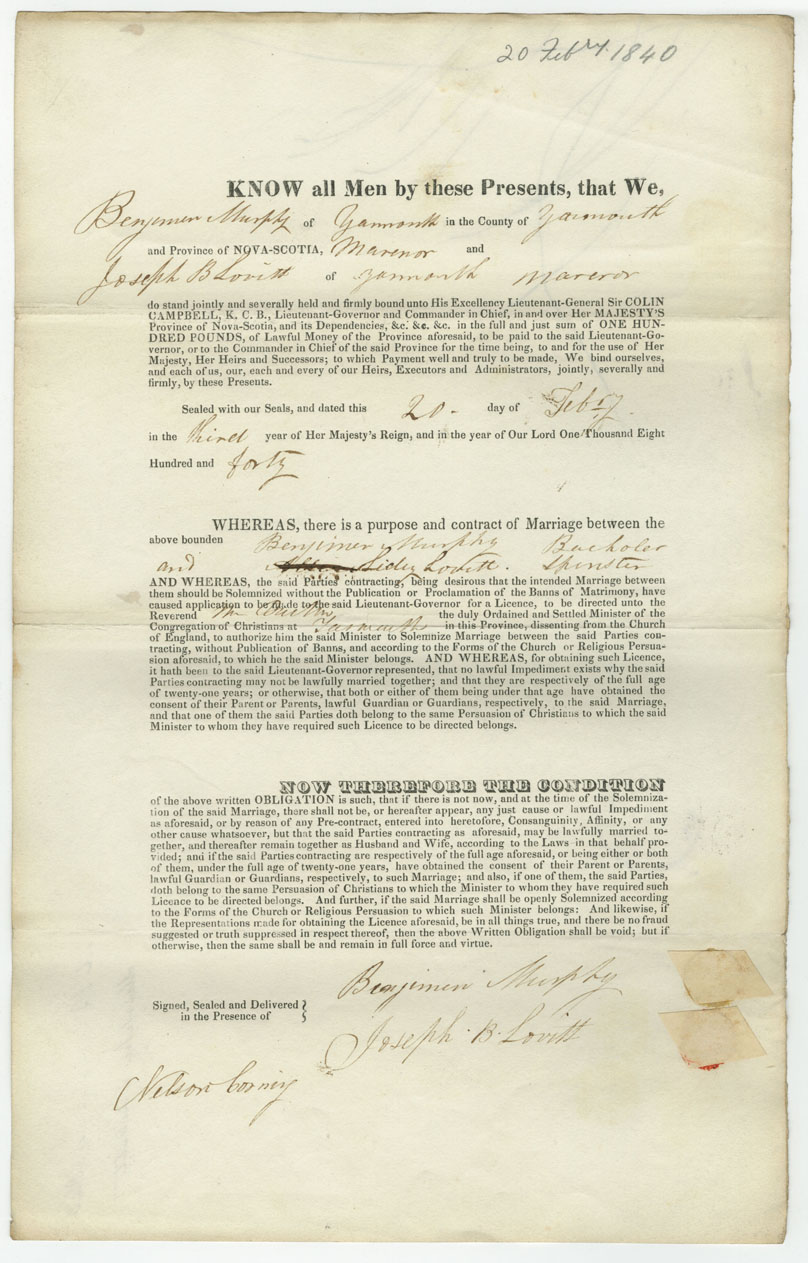 20 Febry. 1840
KNOW all Men by these Presents, that We,
Benjimen Murphy of Yarmouth in the County of Yarmouth
and Province of NOVA-SCOTIA, Marenor and
Joseph B Lovitt of Yarmouth Mareror
do stand jointly and severally held and firmly bound unto His Excellency Lieutenant-General Sir COLIN
CAMPBELL, K. C. B., Lieutenant-Governor and Commander in Chief, in and over Her MAJESTY'S
Province of Nova-Scotia, and its Dependencies, &c. &c. &c. in the full and just sum of ONE HUN-
DRED POUNDS, of Lawful Money of the Province aforesaid, to be paid to the said Lieutenant-Go-
vernor, or to the Commander in Chief of the said Province for the time being, to and for the use of Her
Majesty, Her Heirs and Successors; to which Payment well and truly to be made, We bind ourselves,
and each of us, our, each and every of our Heirs, Executors and Administrators, jointly, severally and
firmly, by these Presents.
Sealed with our Seals, and dated this 20 - day of Febry.
in the third year of Her Majesty's Reign, and in the year of Our Lord One Thousand Eight
Hundred and forty
WHEREAS, there is a purpose and contract of Marriage between the
above bounden Benjimen Murphy Bacholer
and Lovitt. Spinster
AND WHEREAS, the said Parties contracting, being desirous that the intended Marriage between
them should be Solemnized without the Publication or Proclamation of the Banns of Matrimony, have
caused application to be made to the said Lieutenant-Governor for a Licence, to be directed unto the
Reverend the duly Ordained and Settled Minister of the
Congregation of Christians at Yarmouth in this Province, dissenting from the Church
of England, to authorize him the said Minister to Solemnize Marriage between the said Parties con-
tracting, without Publication of Banns, and according to the Forms of the Church or Religious Persua-
sion aforesaid, to which he the said Minister belongs. AND WHEREAS, for obtaining such Licence,
it hath been to the said Lieutenant-Governor represented, that no lawful Impediment exists why the said
Parties contracting may not be lawfully married together; and that they are respectively of the full age
of twenty-one years; or otherwise, that both or either of them being under that age have obtained the
consent of their Parent or Parents, lawful Guardian or Guardians, respectively, to the said Marriage,
and that one of them the said Parties doth belong to the same Persuasion of Christians to which the said
Minister to whom they have required such Licence to be directed belongs.
NOW THEREFORE THE CONDITION
of the above written OBLIGATION is such, that if there is not now, and at the time of the Solemniza-
tion of the said Marriage, there shall not be, or hereafter appear, any just cause or lawful Impediment
as aforesaid, or by reason of any Pre-contract, entered into heretofore, Consanguinity, Affinity, or any
other cause whatsoever, but that the said Parties contracting as aforesaid, may be lawfully married to-
gether, and thereafter remain together as Husband and Wife, according to the Laws in that behalf pro-
vided; and if the said Parties contracting are respectively of the full age aforesaid, or being either or both
of them, under the full age of twenty-one years, have obtained the consent of their Parent or Parents,
lawful Guardian or Guardians, respectively, to such Marriage; and also, if one of them, the said Parties,
doth belong to the same Persuasion of Christians to which the Minister to whom they have required such
Licence to be directed belongs. And further, if the said Marriage shall be openly Solemnized according
to the Forms of the Church or Religious Persuasion to which such Minister belongs: And likewise, if
the Representations made for obtaining the Licence aforesaid, be in all things true, and there be no fraud
suggested or truth suppressed in respect thereof, then the above Written Obligation shall be void; but if
otherwise, then the same shall be and remain in full force and virtue.
Benjimen Murphy
Signed, Sealed and Delivered
in the Presence of
Joseph. B. Lovitt
Nelson Corning